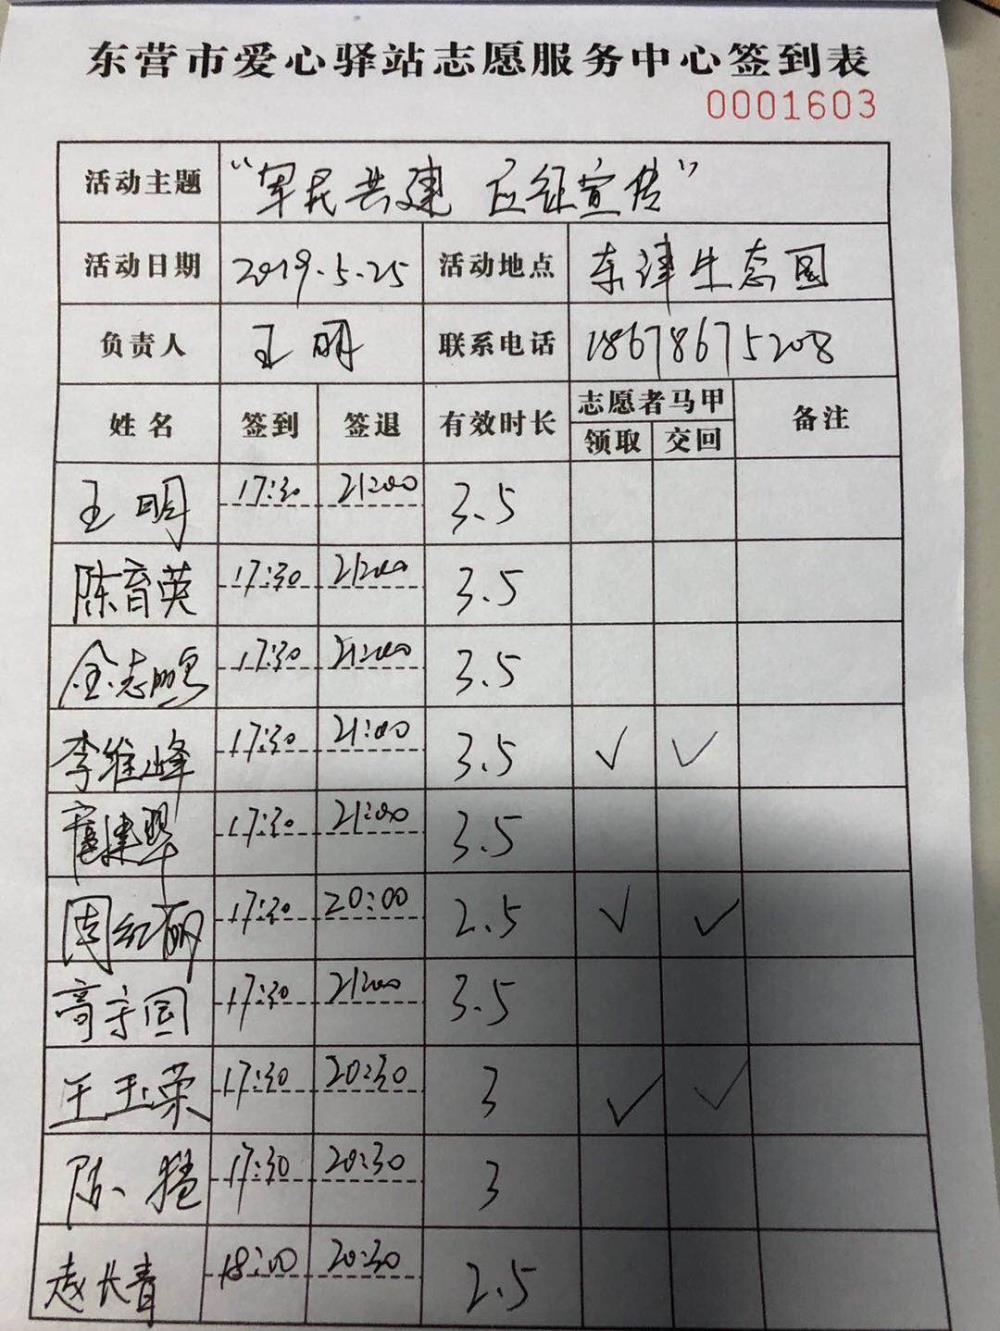 东营市爱心驿站志愿服务中心签到表
0001603
活动主题 “军民共建 应征宣传”
活动日期 2019.5.25 活动地点 东津生态园
负责人 王明 联系电话 18678675208
姓名 签到 签退 有效时长 志愿者马甲 备注
领取 交回
王明 17:30 21:00 3.5
陈育英 17:30 21:00 3.5
金志鹏 17:30 21:00 3.5
李维峰 17:30 21:00 3.5 ✓ ✓
17:30 21:00 3.5
周红丽 17:30 20:00 2.5 ✓ ✓
高守国 17:30 21:00 3.5
王玉荣 17:30 20:30 3 ✓ ✓
陈猛 17:30 20:30 3
赵长青 18:00 20:30 2.5